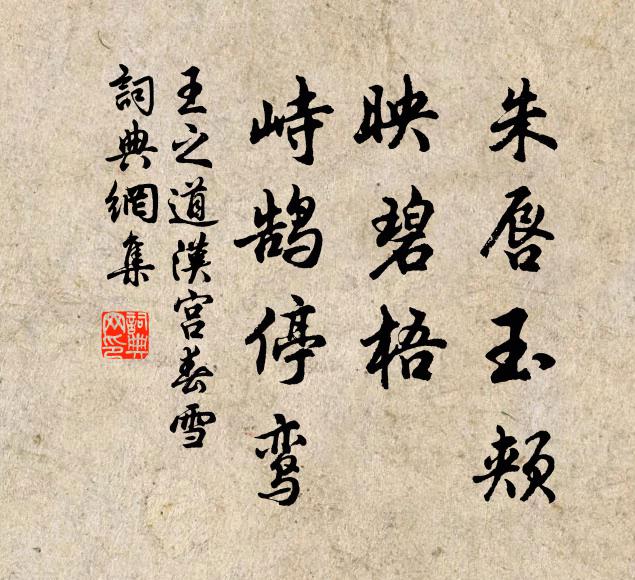 朱唇玉颊
映碧梧
峙鹄停鸾
王之道漢宫春雪
詞典網集
詞典网印